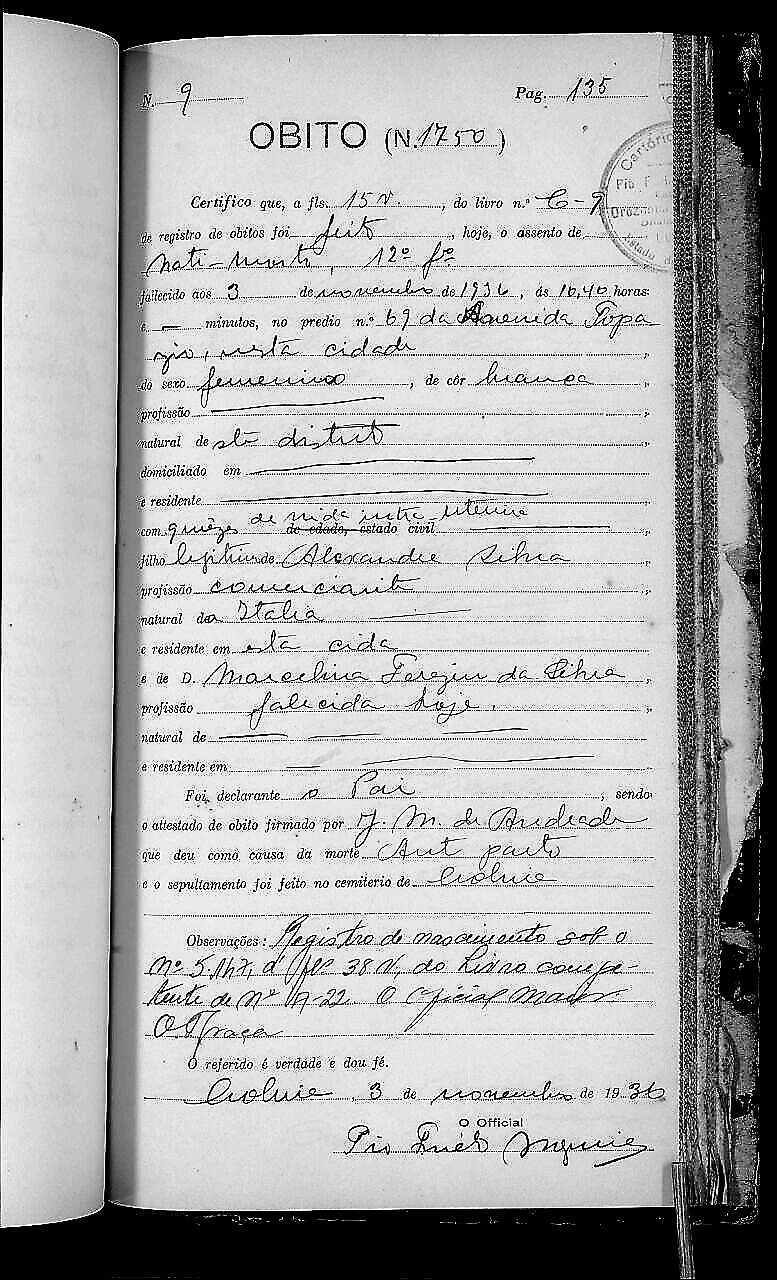 N. 9 Pag. 135
OBITO (N. 1750)
Certifico que, a fls. 15 v. , do livro n.º C-9
de registro de obitos foi feito , hoje, o assento de
nati-morto, 12º fº
fallecido aos 3 de novembro de 1936, ás 10,40 horas
e — minutos, no predio n.º 69 da Avenida Topa
zio, nesta cidade ,
do sexo femenino , de côr branca ,
profissão ,
natural deste distrito ,
domiciliado em
e residente ,
com 9 mezes de vida intra uterina de edade, estado civil ,
filho legitimo de Alexandre Silva
profissão comerciante ,
natural da Italia
e residente em esta cida
e de D. Marcelina Terezin da Silva ,
profissão falecida hoje. ,
natural de
e residente em
Foi declarante o Pai , sendo
o attestado de obito firmado por J. M. de Andrade
que deu como causa da morte Ant parto
e o sepultamento foi feito no cemiterio de
Observações: Registro de nascimento sob o
Nº 5.147, á fls 38 v, do Livro compe-
tente de Nº A-22. O Oficial Maior
O referido é verdade e dou fé.
, 3 de novembro de 1936
O Official
Pio
Cartório